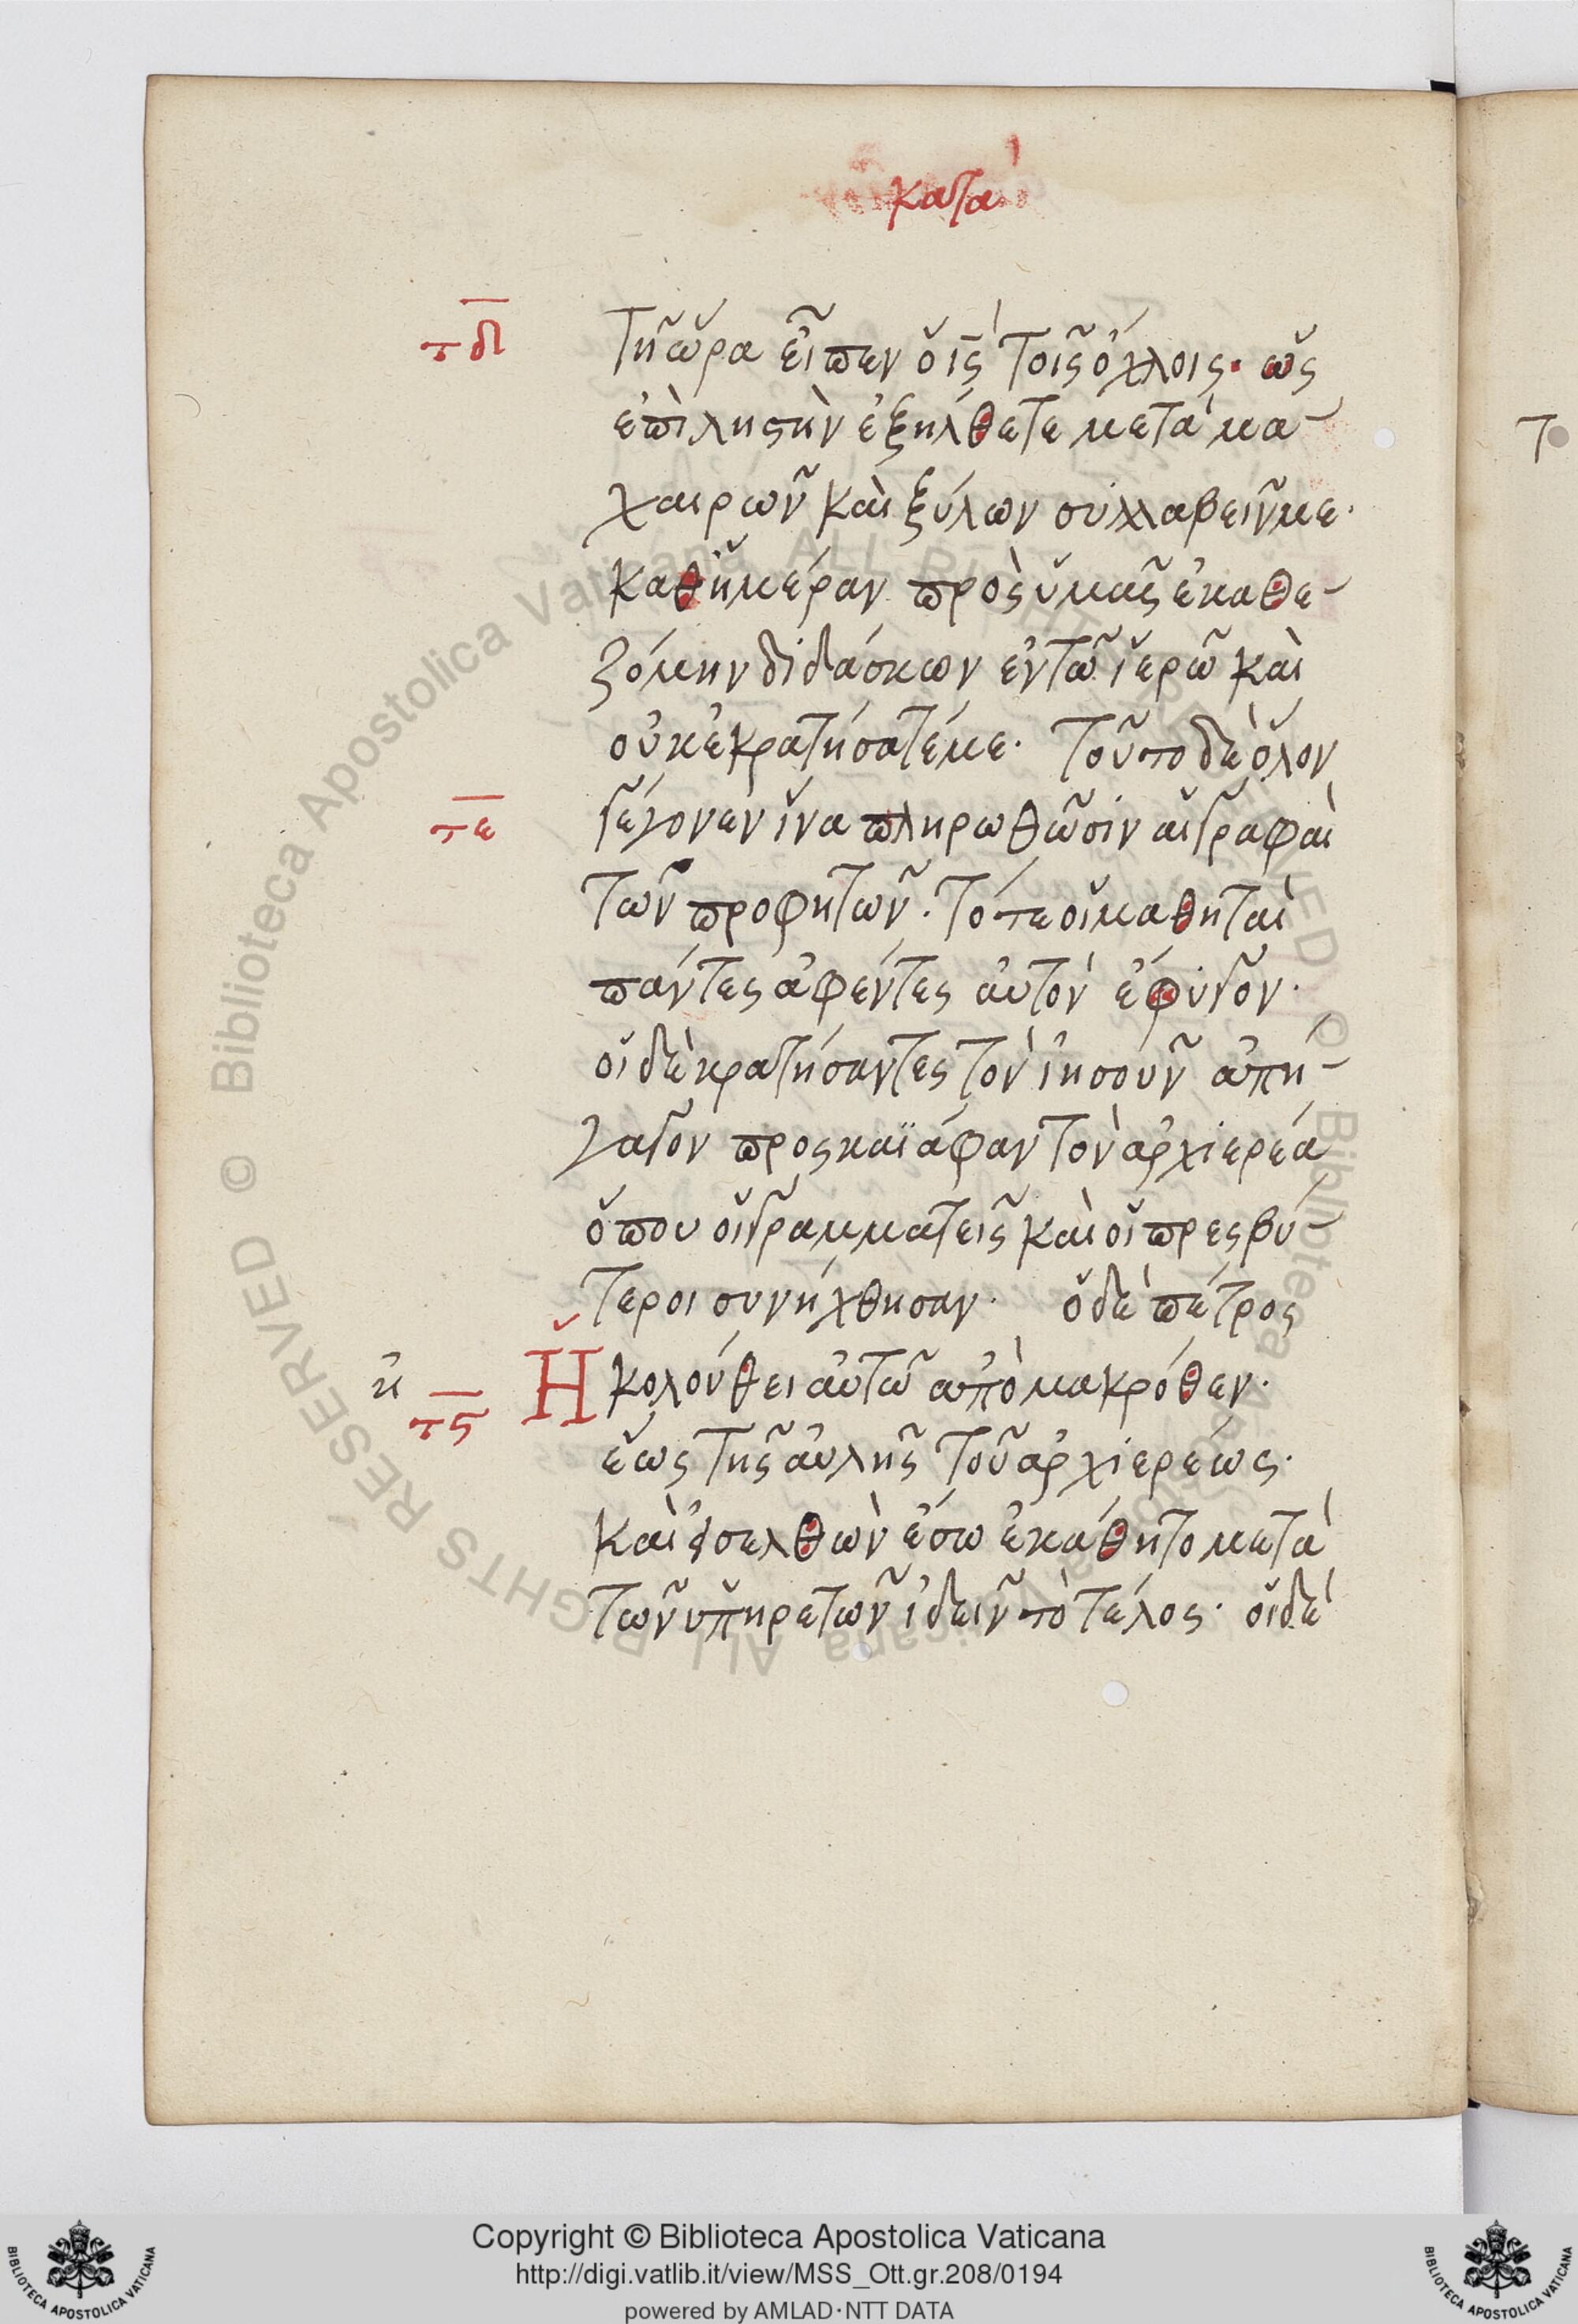 κατὰ
τδ
Τῆ ὥρα εἶπεν ὁ ις τοῖς ὄχλοις· ὡς
ἐπὶ ληστὴν ἐξήλθετε μετὰ μα-
χαιρῶν καὶ ξύλων συλλαβεῖν με·
καθ ἡμέραν πρὸς ὑμᾶς ἐκαθε-
ζόμην διδάσκων ἐν τῶ ἱερῶ καὶ
οὐκ ἐκρατήσατέ με· Τοῦτο δὲ ὅλον
τε
γέγονεν ἵνα πληρωθῶσιν αἱ γραφαὶ
τῶν προφητῶν· Τότε οἱ μαθηταὶ
πάντες ἀφέντες αὐτὸν ἔφυγον·
οἱ δὲ κρατήσαντες τὸν ἰησοῦν ἀπή-
γαγον προς καϊάφαν τὸν ἀρχιερέα
ὅπου οἱ γραμματεῖς καὶ οἱ πρεσβύ-
τεροι συνήχθησαν· ὁ δὲ πέτρος
ἠ
τϛ
Ἠκολούθει αὐτῶ ἀπὸ μακρόθεν·
ἕως τῆς αὐλῆς τοῦ ἀρχιερέως·
καὶ εἰσελθὼν ἔσω ἐκάθητο μετὰ
τῶν ὑπηρετῶν ἰδεῖν τὸ τέλος· οἱ δὲ
Biblioteca Apostolica Vaticana ALL RIGHTS RESERVED ©
Biblioteca Apostolica Vaticana ALL RIGHTS RESERVED ©
Copyright © Biblioteca Apostolica Vaticana
http://digi.vatlib.it/view/MSS_Ott.gr.208/0194
powered by AMLAD·NTT DATA
BIBLIOTECA APOSTOLICA VATICANA
BIBLIOTECA APOSTOLICA VATICANA